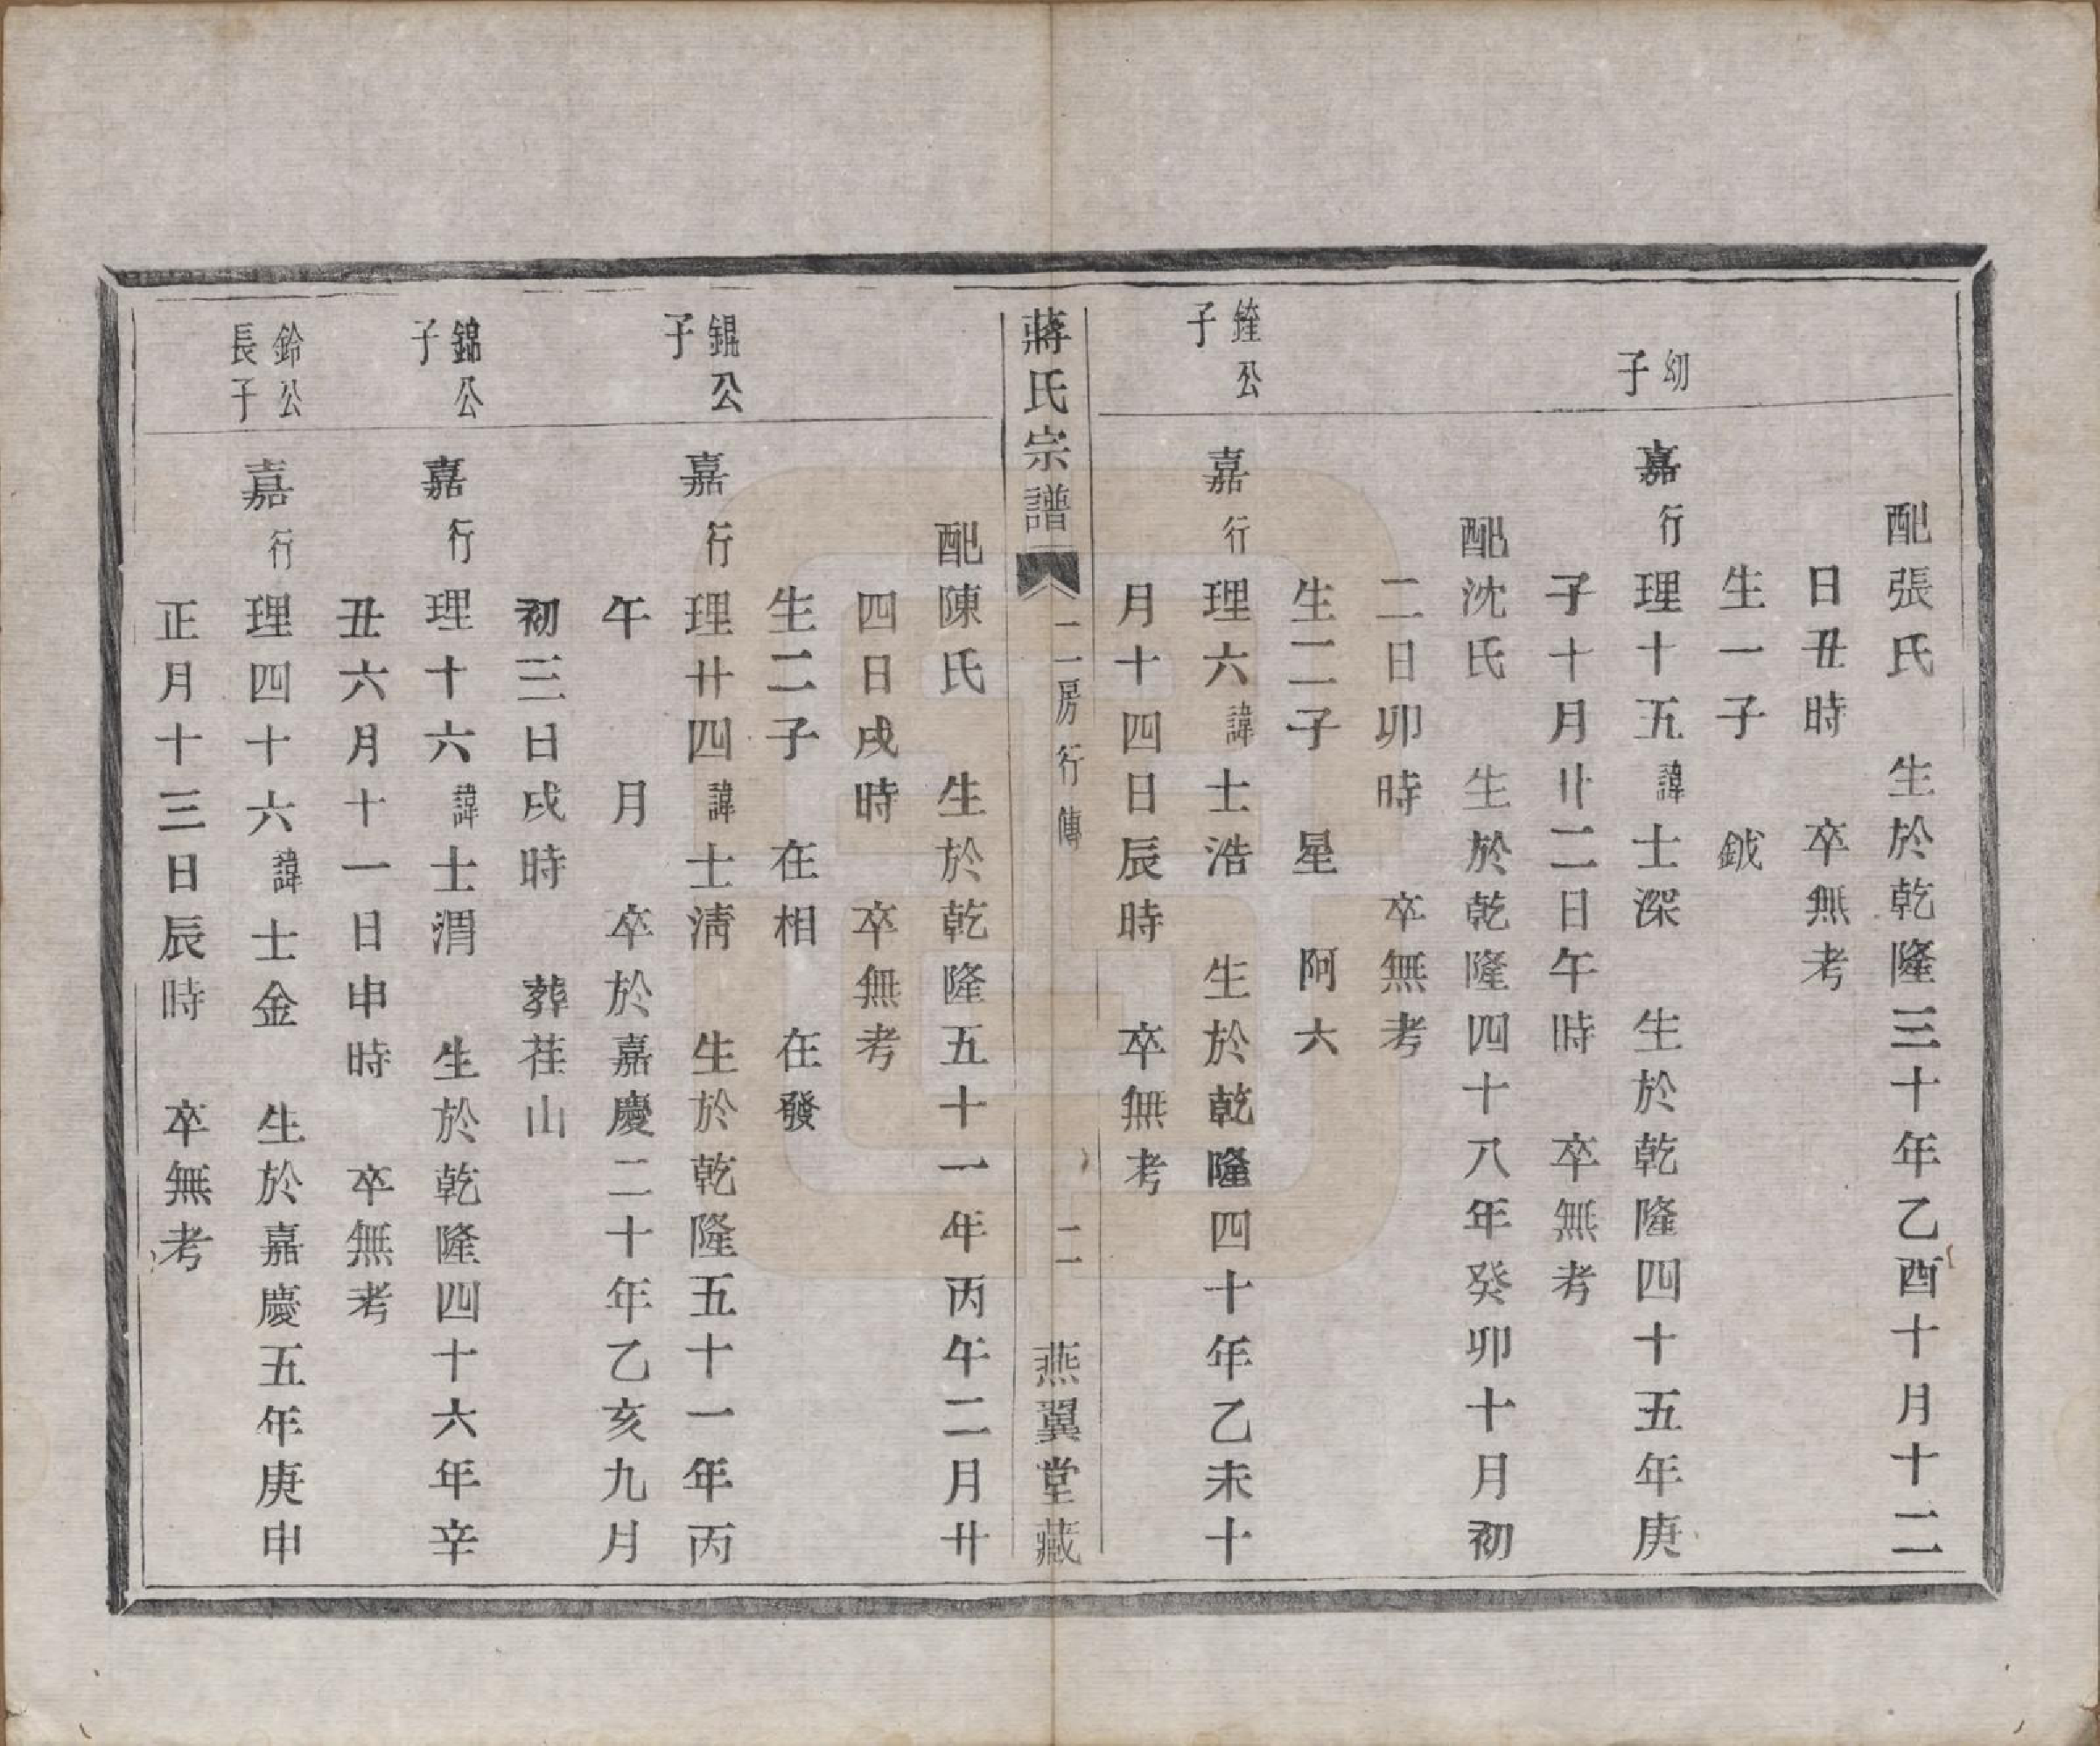 配張氏　生於乾隆三十年乙酉十月十二
日丑時　卒無考
生一子　鉞
幼子
嘉行理十五諱士深　生於乾隆四十五年庚
子十月廿二日午時　卒無考
配沈氏　生於乾隆四十八年癸卯十月初
二日卯時　卒無考
生二子　星　阿六
公子
嘉行理六諱士浩　生於乾隆四十年乙未十
月十四日辰時　卒無考
蔣氏宗譜　二房行傳　二　燕翼堂藏
配陳氏　生於乾隆五十一年丙午二月廿
四日戌時　卒無考
生二子　在相　在發
錕公子
嘉行理廿四諱士淸　生於乾隆五十一年丙
午　月　卒於嘉慶二十年乙亥九月
初三日戌時　葬荏山
錦公子
嘉行理十六諱士渭　生於乾隆四十六年辛
丑六月十一日申時　卒無考
鈴公長子
嘉行理四十六諱士金　生於嘉慶五年庚申
正月十三日辰時　卒無考